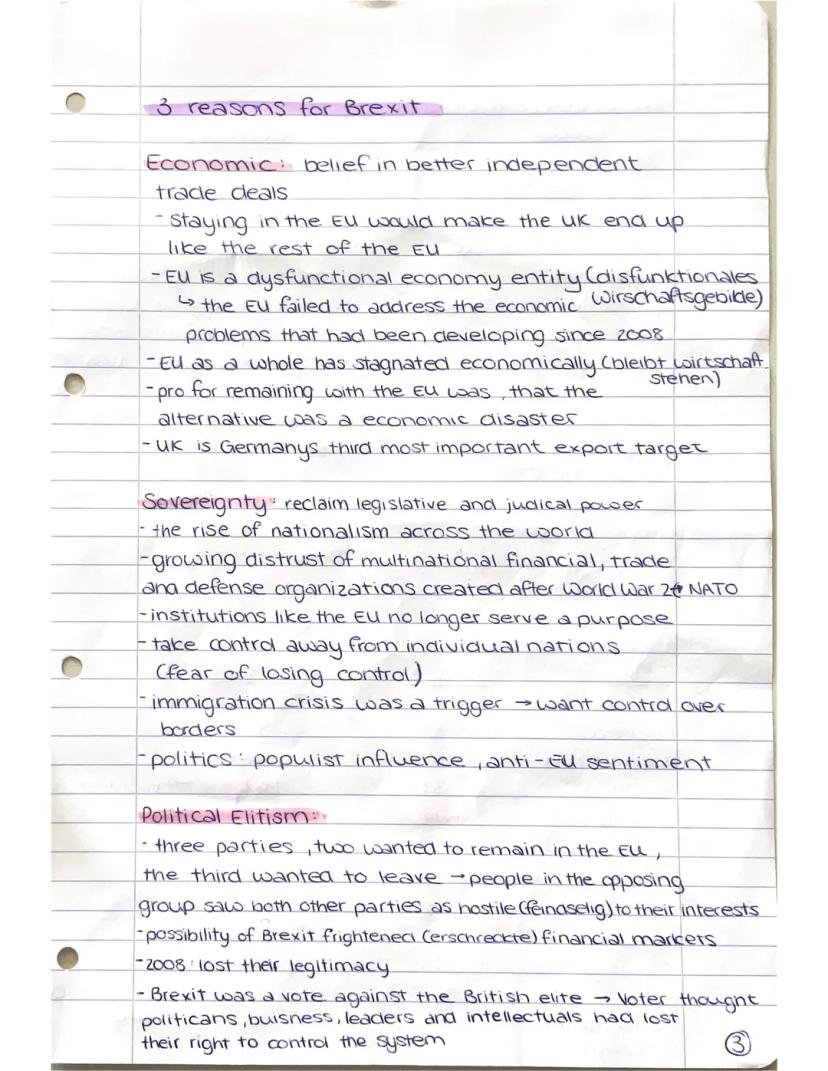 3 reasons for Brexit
Economic: belief in better independent
trade deals
- Staying in the EU would make the UK end up
like the rest of the EU
- EU is a dysfunctional economy entity (disfunktionales
↳ the EU failed to address the economic Wirschaftsgebilde)
problems that had been developing since 2008
- EU as a whole has stagnated economically (bleibt wirtschaft.
stehen)
- pro for remaining with the EU was, that the
alternative was a economic disaster
- UK is Germanys third most important export target
Sovereignty: reclaim legislative and judical power
- the rise of nationalism across the world
- growing distrust of multinational financial, trade
and defense organizations created after World War 2 NATO
- institutions like the EU no longer serve a purpose
- take control away from individual nations
(fear of losing control)
- immigration crisis was a trigger → want control over
borders
- politics: populist influence, anti-EU sentiment
Political Elitism:
- three parties, two wanted to remain in the EU,
the third wanted to leave → people in the opposing
group saw both other parties as hostile (feindselig) to their interests
- possibility of Brexit frightened (erschreckte) financial markers
- 2008: lost their legitimacy
- Brexit was a vote against the British elite → Voter thought
politicans, buisness, leaders and intellectuals had lost
their right to control the system
3